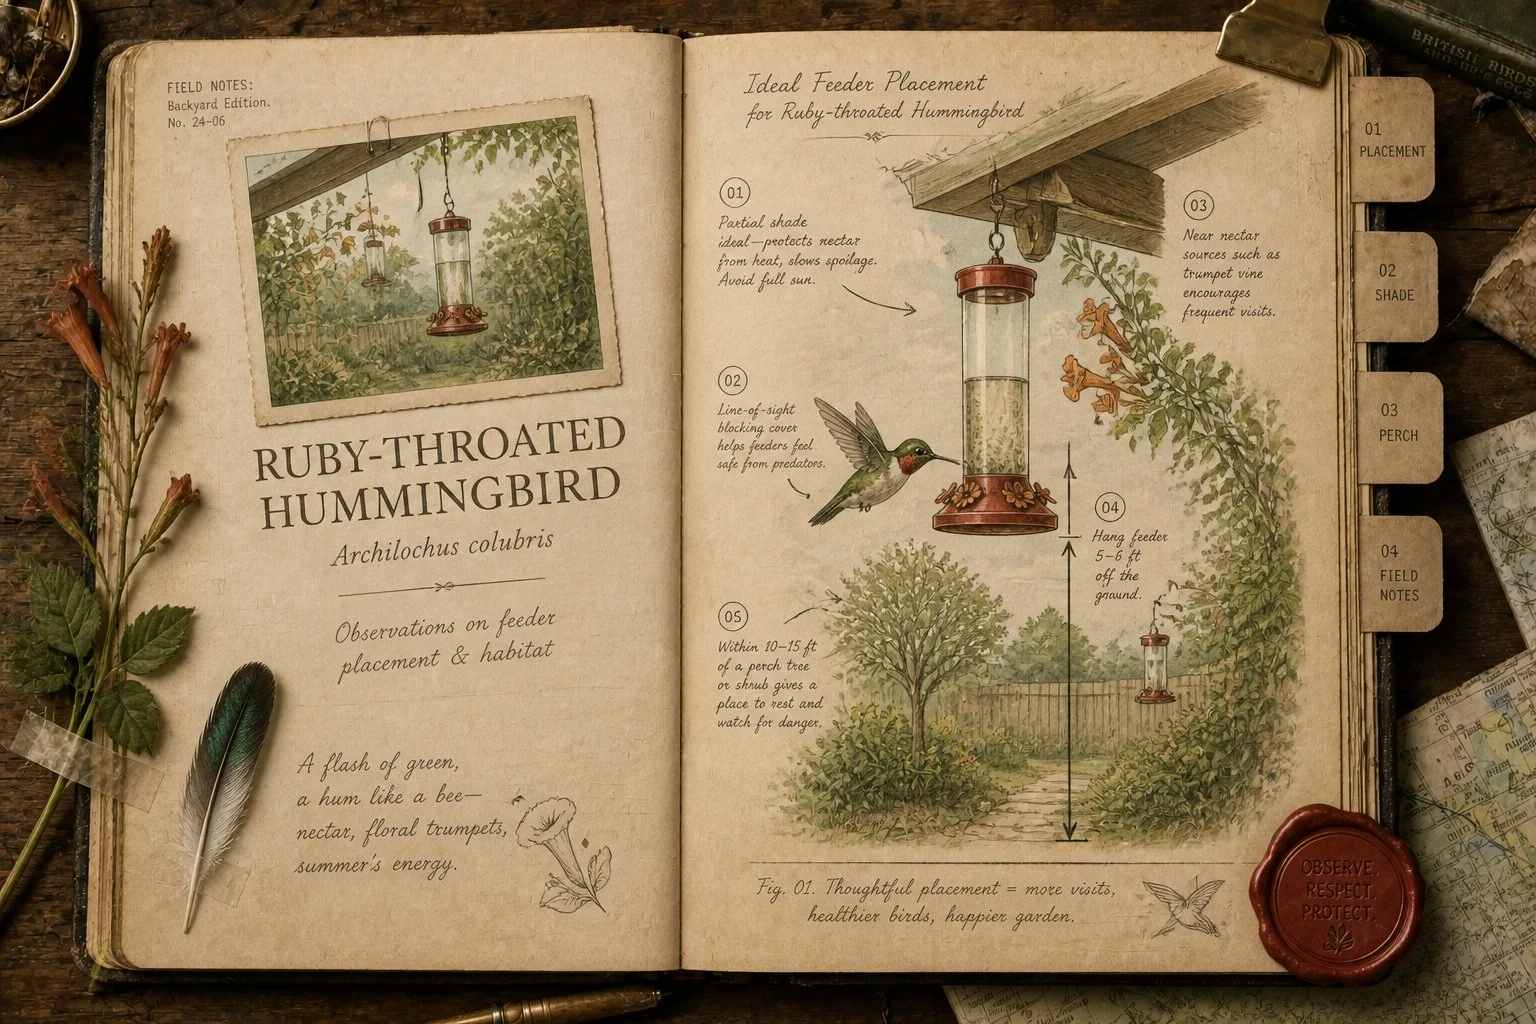 FIELD NOTES:
Backyard Edition.
No. 24-06
RUBY-THROATED
HUMMINGBIRD
Archilochus colubris
Observations on feeder
placement & habitat
A flash of green,
a hum like a bee—
nectar, floral trumpets,
summer's energy.
Ideal Feeder Placement
for Ruby-throated Hummingbird
01
Partial shade
ideal—protects nectar
from heat, slows spoilage.
Avoid full sun.
02
Line-of-sight
blocking cover
helps feeders feel
safe from predators.
03
Near nectar
sources such as
trumpet vine
encourages
frequent visits.
04
Hang feeder
5-6 ft
off the
ground.
05
Within 10-15 ft
of a perch tree
or shrub gives a
place to rest and
watch for danger.
Fig. 01. Thoughtful placement = more visits,
healthier birds, happier garden.
01
PLACEMENT
02
SHADE
03
PERCH
04
FIELD
NOTES
BRITISH BIRDS
OBSERVE.
RESPECT.
PROTECT.